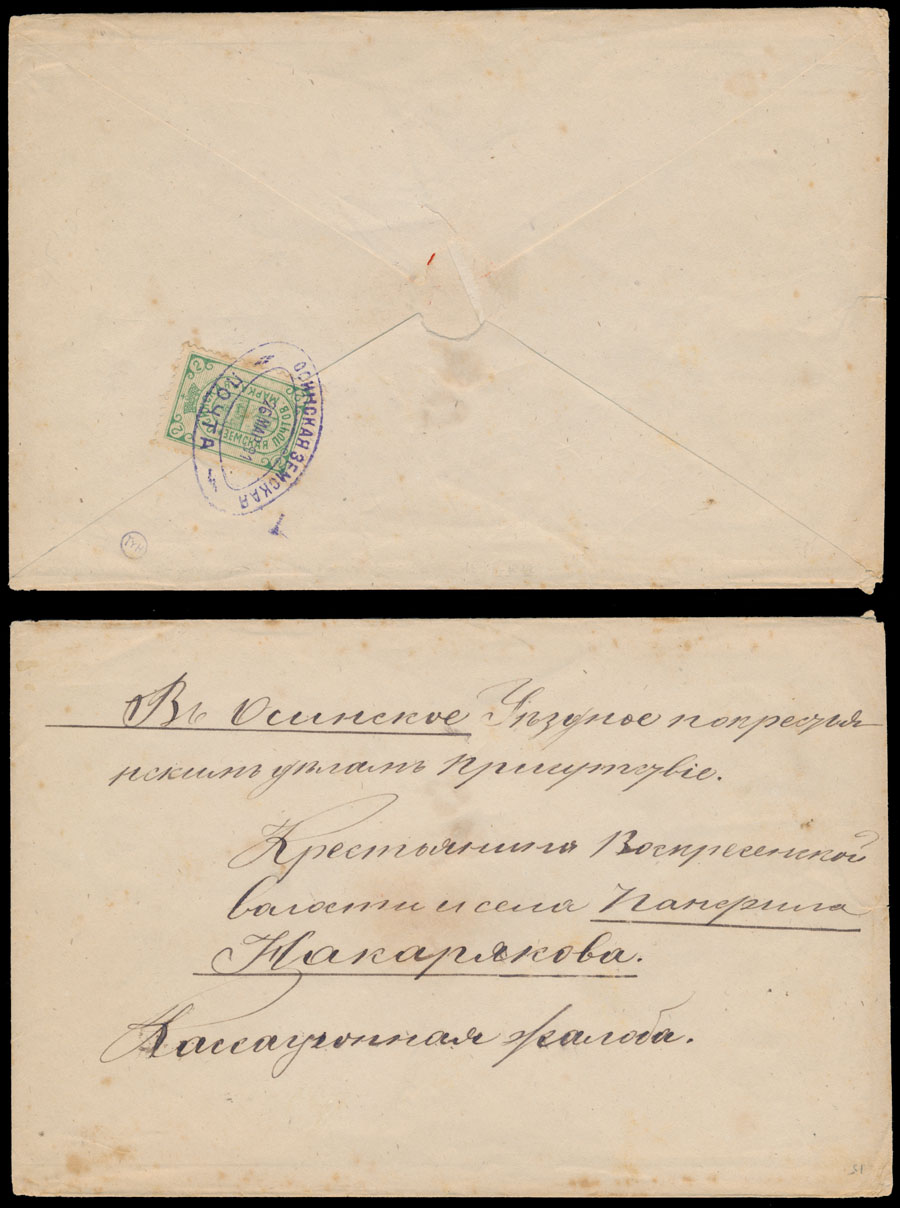 ОСИНСКАЯ ЗЕМСКАЯ
ПОЧТА
26 МАР 91
МАРК
ПОЧТОВ
ЗЕМСКАЯ
2
2
2
Въ Осинское Уѣздное по крестья
нскимъ дѣламъ присутствіе.
Крестьянина Воскресенской
волости и села Панфила
Накарякова.
Кассаціонная жалоба.